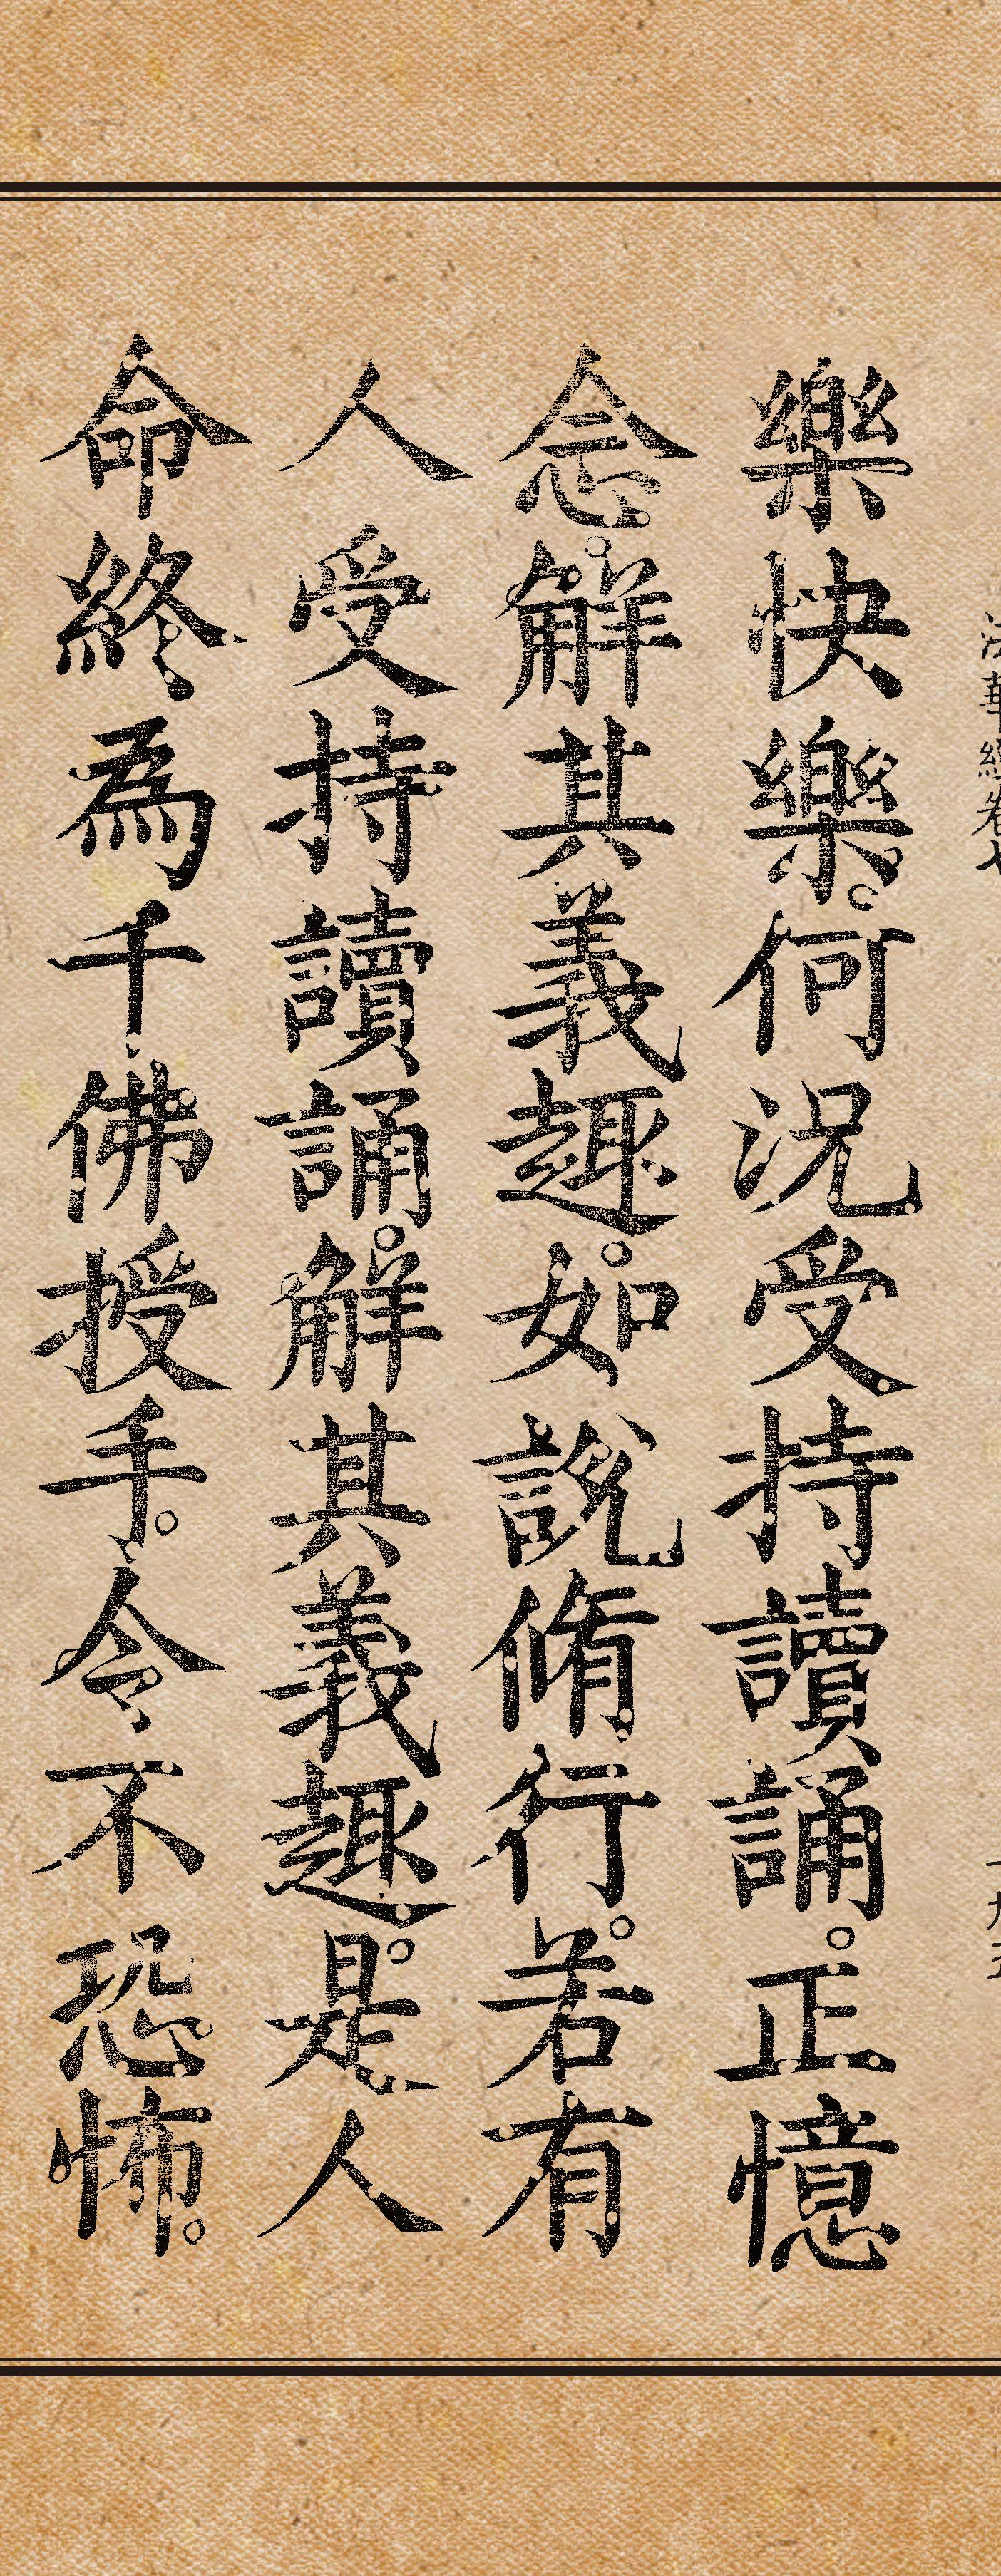 法華經卷七
一九五
樂快樂。何況受持讀誦。正憶
念。解其義趣。如說脩行。若有
人受持讀誦。解其義趣。是人
命終。為千佛授手。令不恐怖。